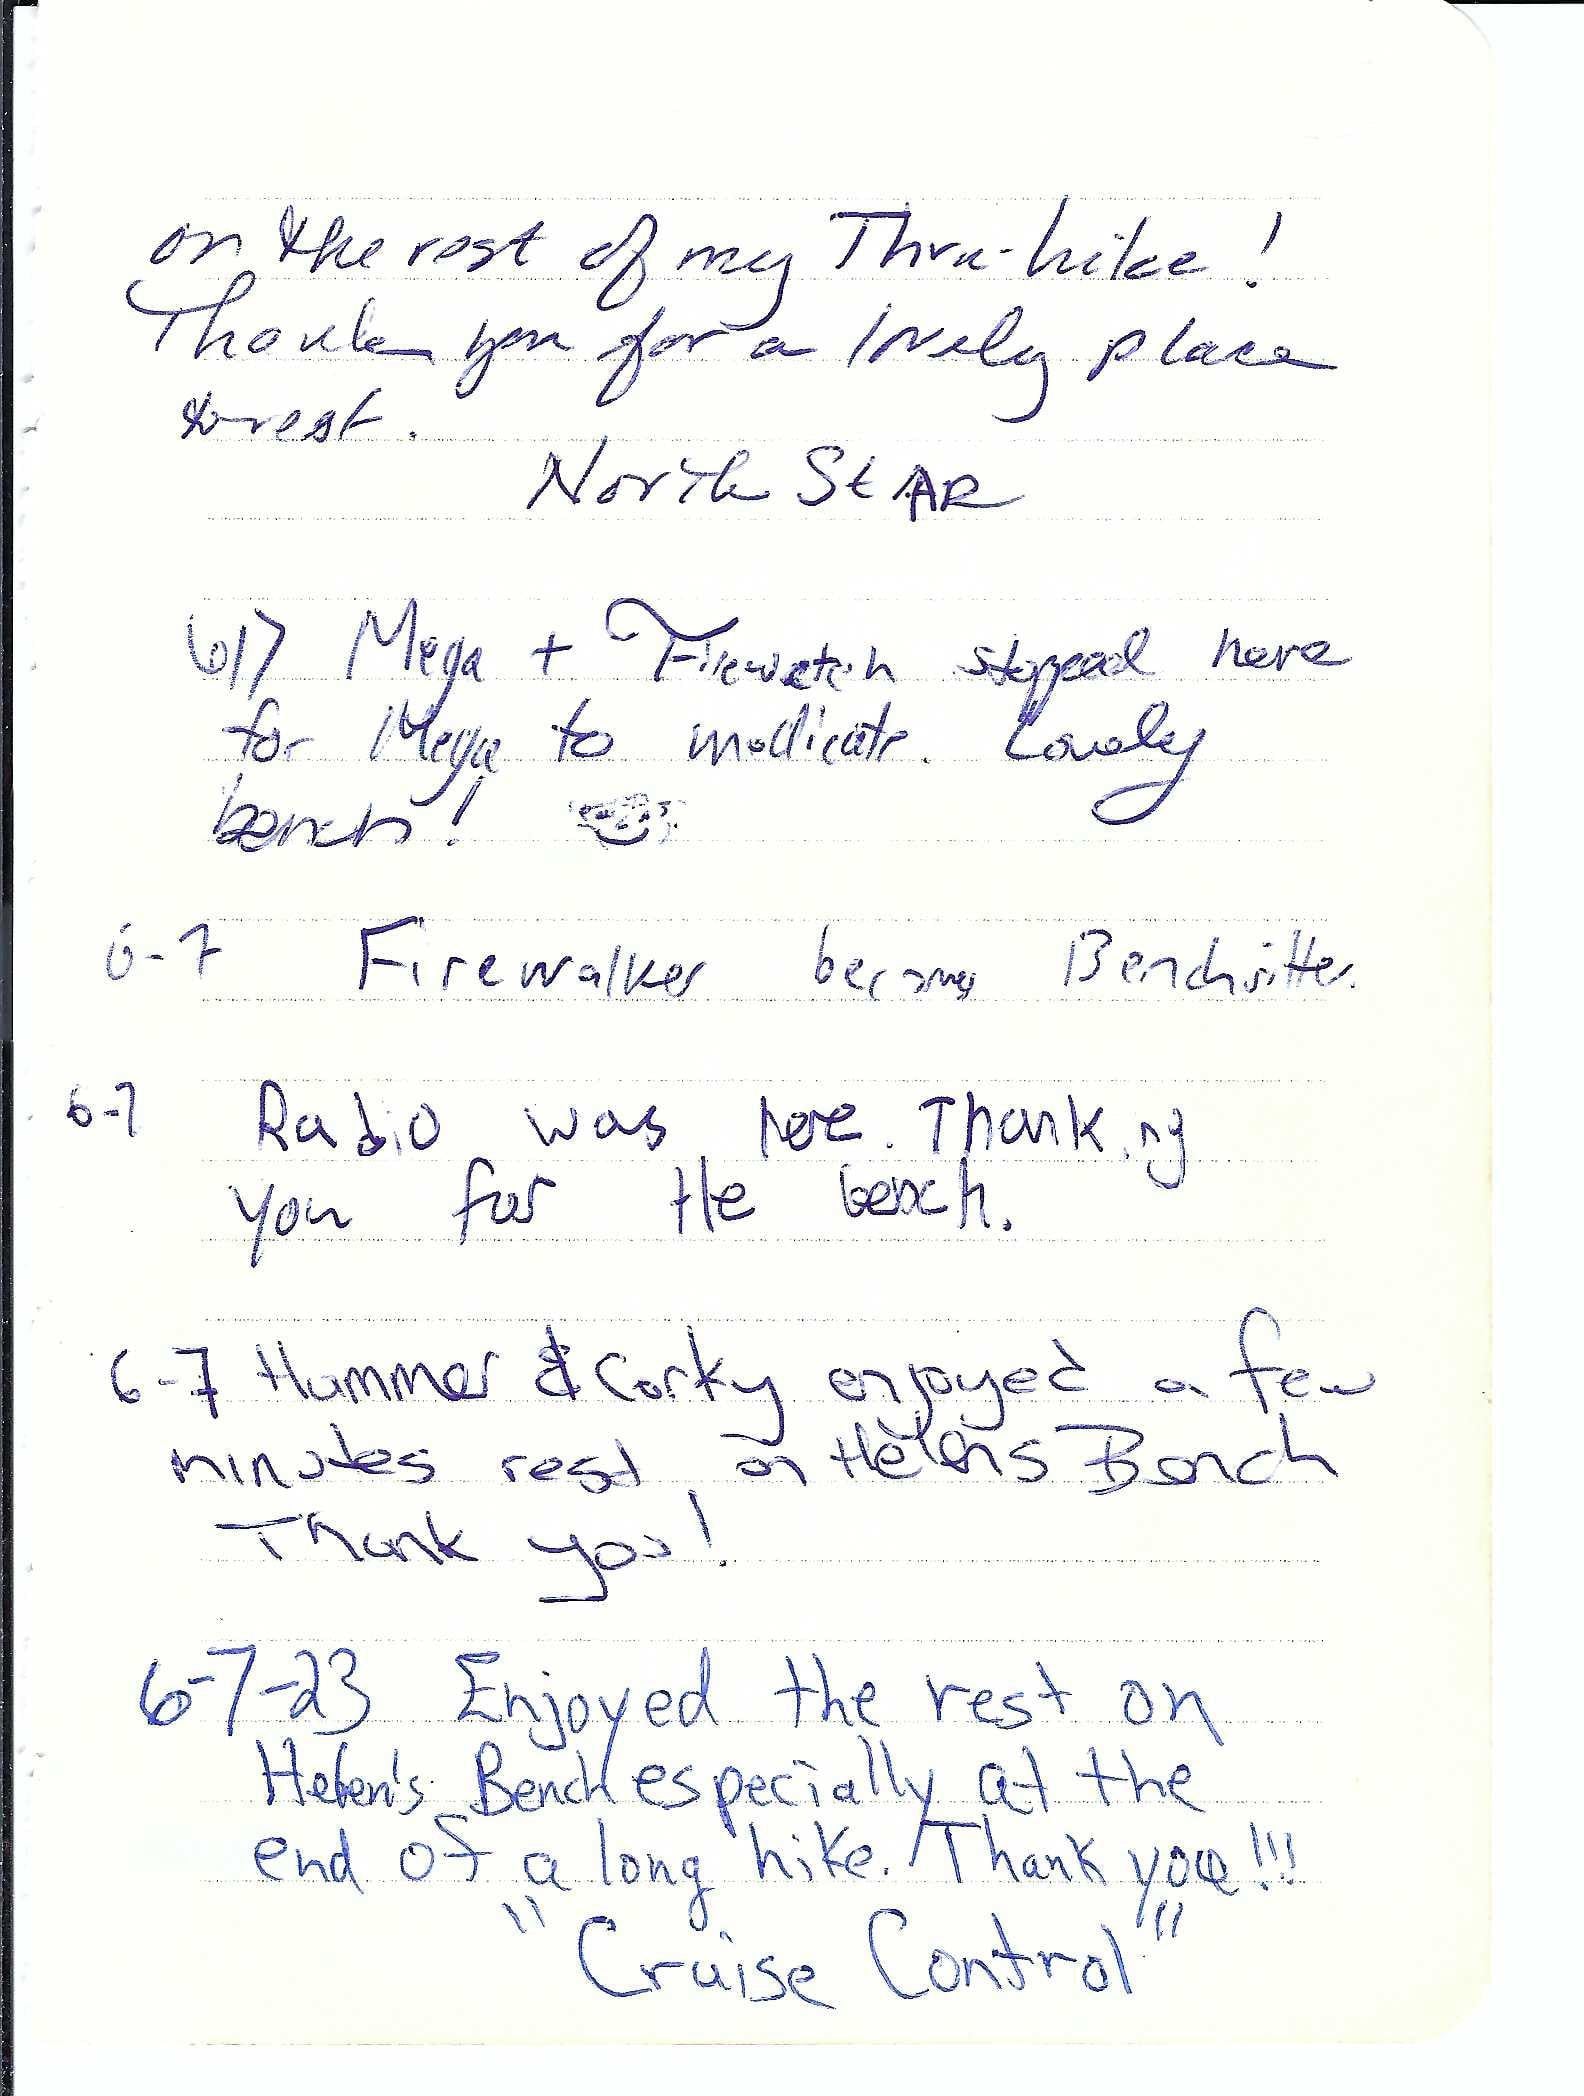 on the rest of my Thru-hike!
Thank you for a lovely place
to rest.
North StAR
6/7 Mega + Firewatch stopped here
for Mega to medicate. Lovely
bench!
6-7 Firewalker becomes Benchsitter.
6-7 Radio was here. Thanking
you for the bench.
6-7 Hummer & Corky enjoyed a few
minutes rest on Helens Bench
Thank you!
6-7-23 Enjoyed the rest on
Helen's Bench especially at the
end of a long hike. Thank you!!!
"Cruise Control"